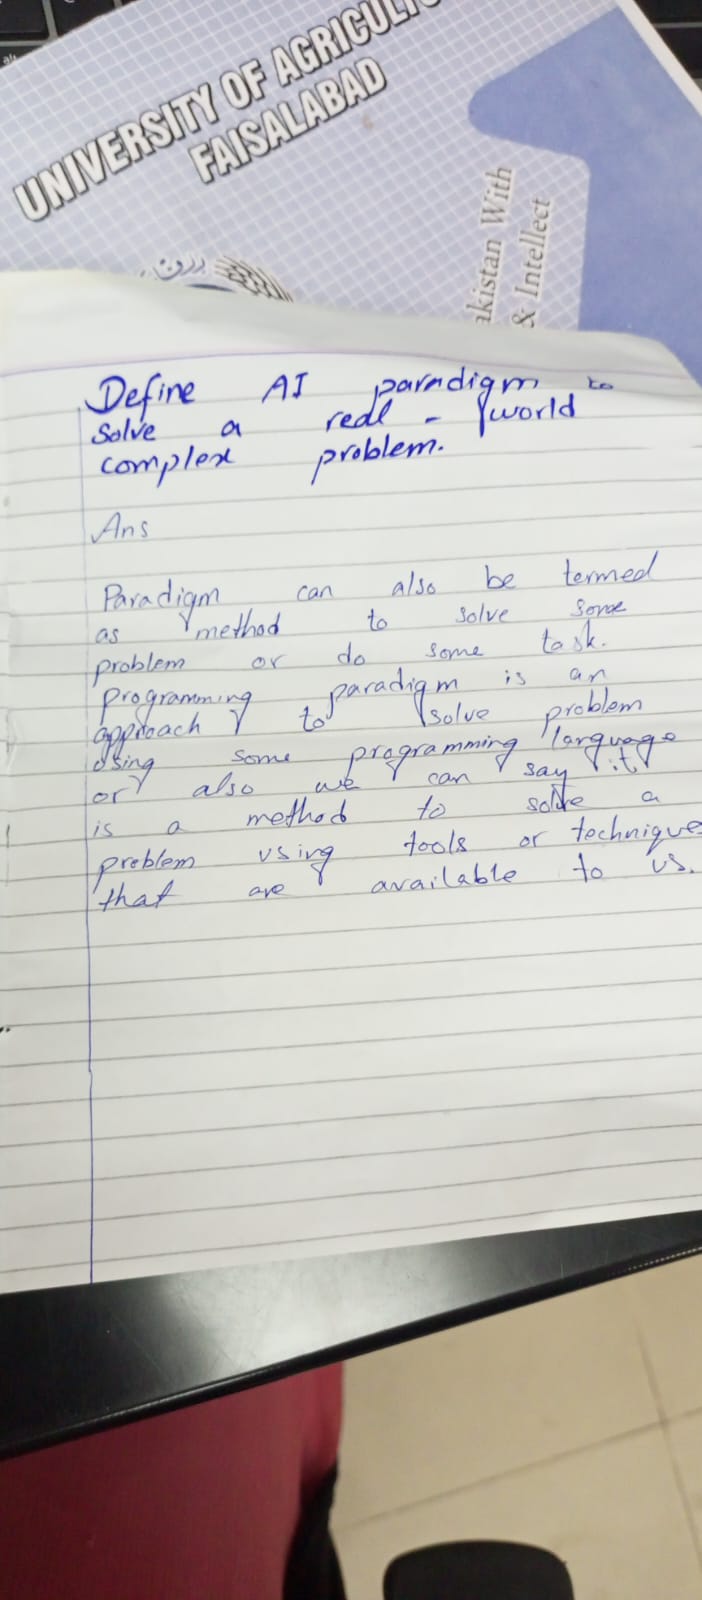 UNIVERSITY OF AGRICULT
FAISALABAD
akistan With
& Intellect
Define AI paradigm to
solve a real - world
complex problem.
Ans
Paradigm can also be termed
as method to solve some
problem or do some task.
programming paradigm is an
approach to solve problem
using some programming language
or also we can say it
is a method to solve a
problem using tools or technique
that are available to us.